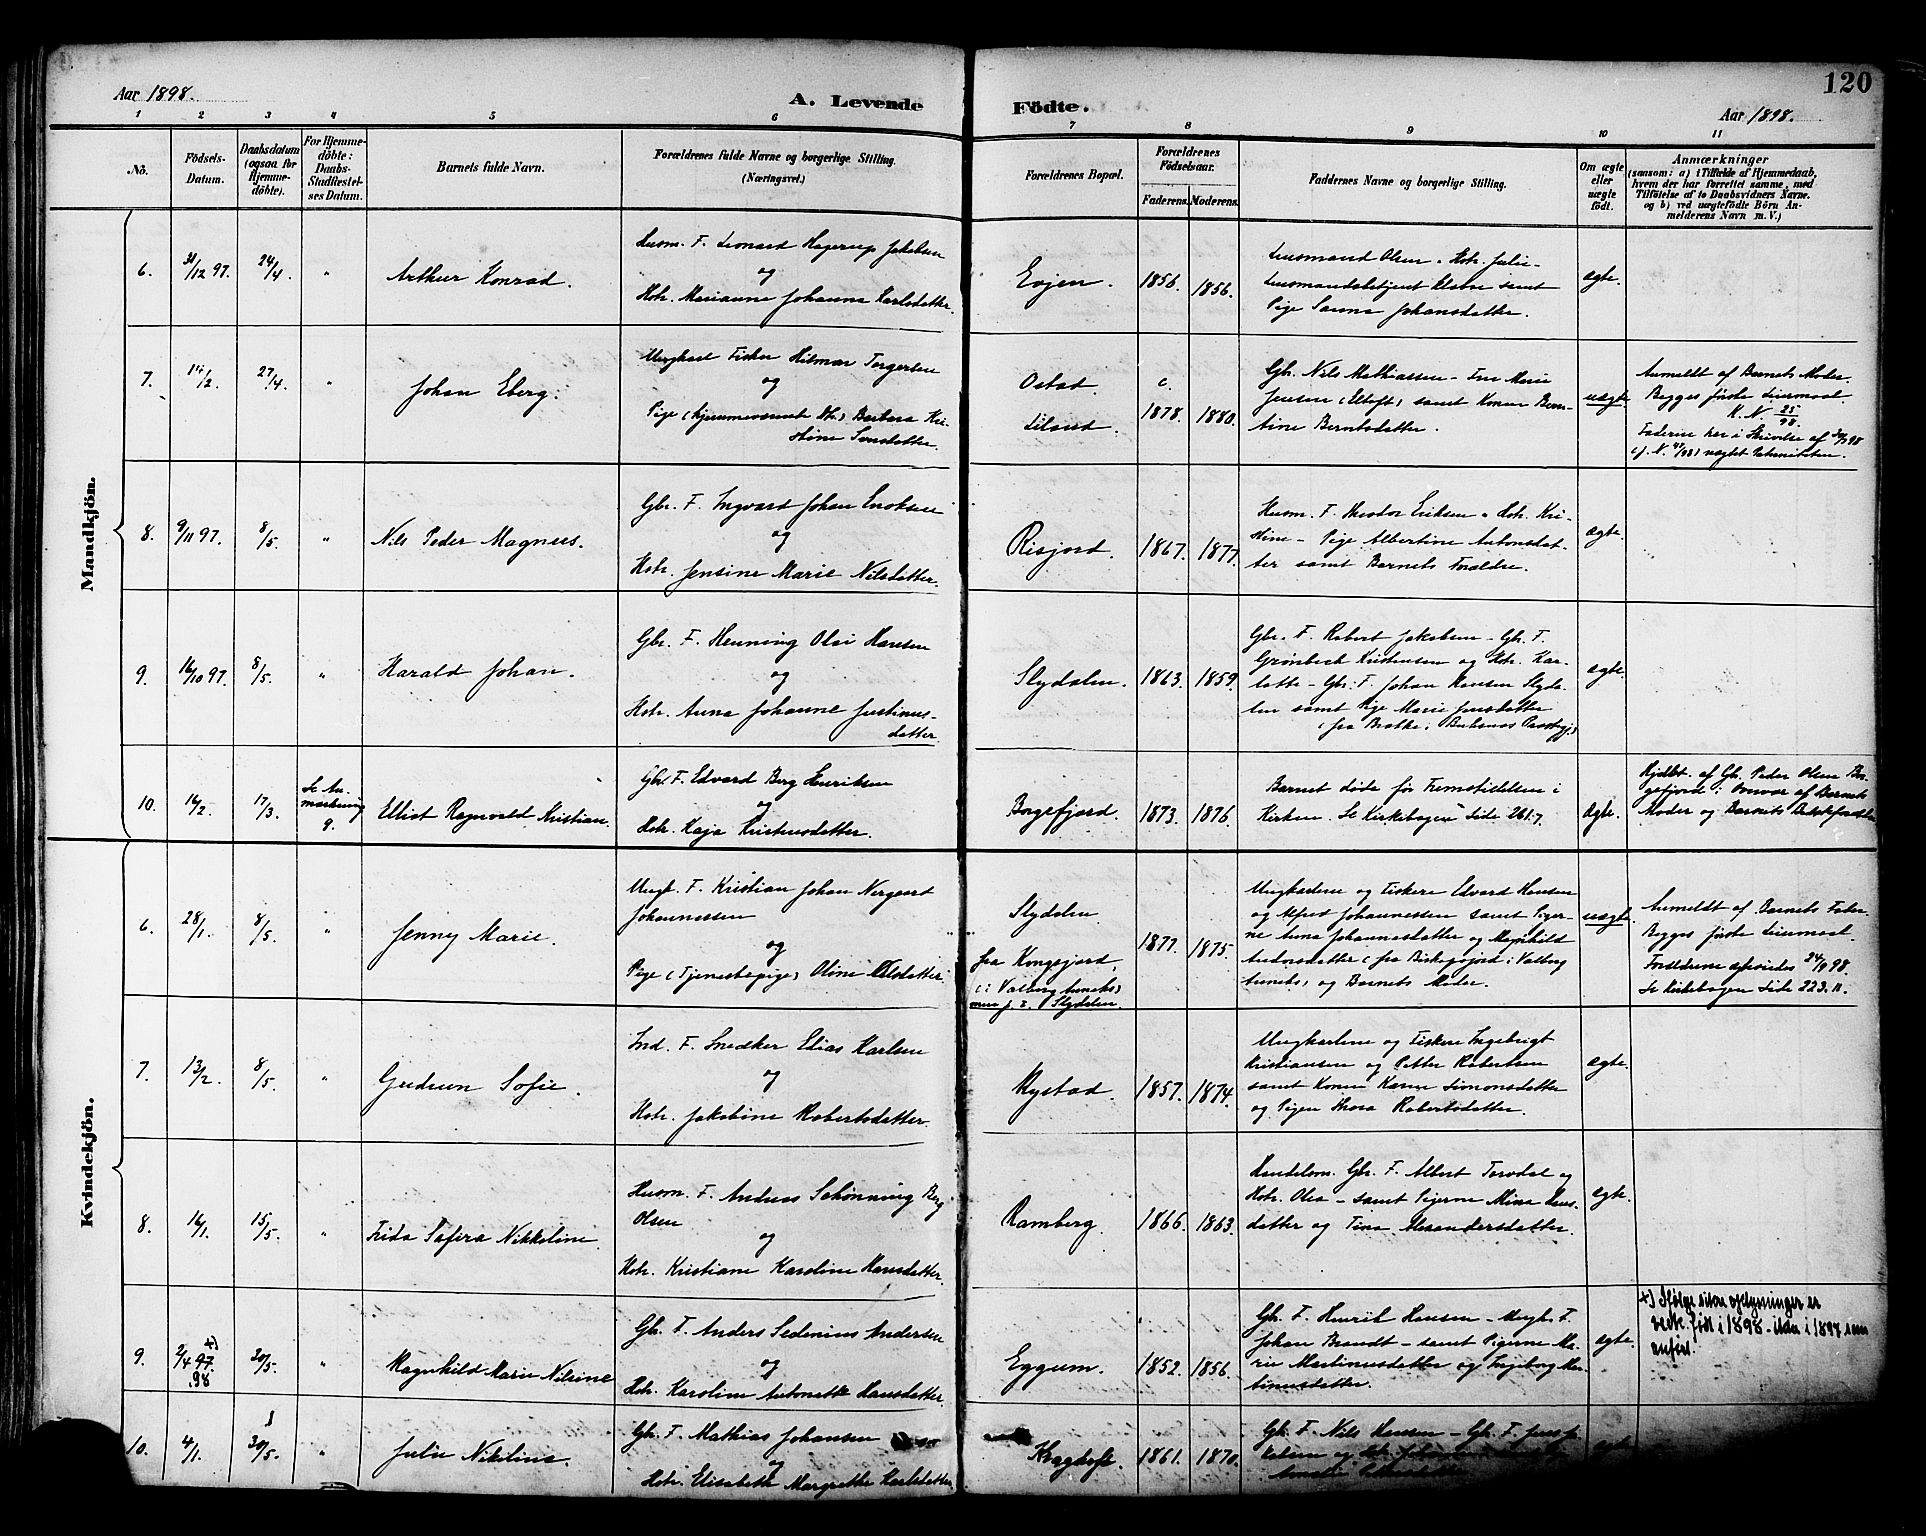 120
Aar 1898.
A. Levende
Födte.
Aar 1898.
1 2 3 4 5 6 7 8 9 10 11
No.
Födsels-
Datum.
Daabsdatum
(ogsaa for
Hjemme-
döbte).
For Hjemme-
döbte:
Daabs-
Stadfæstel-
ses Datum.
Barnets fulde Navn.
Forældrenes fulde Navne og borgerlige Stilling.
(Næringsvei.)
Forældrenes Bopæl.
Forældrenes
Födselsaar.
Faderens. Moderens.
Faddernes Navne og borgerlige Stilling.
Om ægte
eller
uægte
födt.
Anmærkninger
(saasom: a) i Tilfælde af Hjemmedaab,
hvem der har forrettet samme, med
Tilföielse af to Daabsvidners Navne.
og b) ved uægtefödte Börn An-
melderens Navn m. V.)
Mandkjön.
6. 31/12 97. 24/4 "
Arthur Konrad.
Husm. F. Leonard Hagerup Jakobsen
og
Hstr. Marianne Johanna Karlsdatter.
Evjen.
1856. 1856.
Lensmand Olsen, Hstr. Julie -
Lensmandsbetjent samt
Pige Sanna Johansdatter.
ægte.
7. 14/2. 27/4. "
Johan Eberg.
Ungkarl Fisker Hilmar Torgersen
og
Pige (hjemmeværende Dtr.) Barbara Kri-
stine Sonsdatter.
Ostad
Liland.
c.
1878. 1880.
Gbr. Nils Mathiassen - Fru Marie
Jensen (Eltoft) samt Konen Bern-
tine Berntsdatter.
uægte.
Anmeldt af Barnets Moder.
Begges første Leiermaal.
K. N. 25/98.
Faderen har i Skrivelse af
nægtet Paterniteten.
8. 9/11 97. 8/5. "
Nils Peder Magnus.
Gbr. F. Ingvard Johan Enoksen
og
Hstr. Jensine Marie Nilsdatter.
Risjord.
1867. 1877.
Husm. F. Theodor Eriksen, Hstr. Kri-
stine - Pige Albertine Antonsdat-
ter samt Barnets Forældre.
ægte.
9. 16/10 97. 8/5. "
Harald Johan.
Gbr. F. Henning Olai Hansen
og
Hstr. Anna Johanne Justinus-
datter.
Slydalen.
1863. 1859.
Gbr. F. Robert Jakobsen - Gbr. F.
Grønbech Kristensen og Hstr. Kar-
lotte - Gbr. F. Johan Hansen Slyda-
len samt Pige Marie Jensdatter
(fra Bratke i Buksnes Præstegj.)
ægte.
10. 16/2. 17/3.
Se An-
mærkning
9.
Elliot Ragnvald Kristian.
Gbr. F. Edvard Berg Henriksen
og
Hstr. Kaja Kristensdatter.
Borgefjord.
1873. 1876.
Barnet døde før Fremstillelsen i
Kirken. Se Kirkebogens Side 261.7.
Ægte.
Hjdbt. af Gbr. Peder Olsen Bor-
gefjord i Nærvær af Barnets
Moder og Barnets Bedsteforældre
Kvindekjön.
6. 28/1. 8/5. "
Jenny Marie.
Ungk. F. Kristian Johan Nergaard
Johannessen
og
Pige (Tjenestepige) Oline Olsdatter.
Slydalen
fra Kongsjord,
(i Valberg Annekts)
men p. t. Slydalen.
1877. 1875.
Ungkarlene og Fiskere Edvard Hansen
og Alfred Johannessen samt Piger-
ne Anna Johannesdatter og Magnhild
Andorsdatter (fra i Valberg
Annekts) og Barnets Moder.
uægte.
Anmeldt af Barnets Fader.
Begges første Leiermaal.
Forældrene ægteviedes 24/9 98.
Se Kirkebogen Side 223. 11.
7. 13/2. 8/5. "
Gudrun Sofie.
Ind. F. Snedker Edias Karlsen
og
Hstr. Jakobine Robertsdatter.
Rystad.
1857. 1874.
Ungkarlene og Fiskere Ingebrigt
Kristiansen og Petter Robertsen
samt Konen Karen Simonsdatter
og Pigen Thora Robertsdatter.
ægte.
8. 16/1. 15/5. "
Frida Safira Nikkeline.
Husm. F. Andreas Schønning Berg
Olsen
og
Hstr. Kristiane Karoline Hansdatter.
Ramberg.
1866. 1863.
Handelsm. Gbr. F. Albert Torvdal og
Hstr. Olea - samt Pigerne Mina Hans-
datter og Tina Alexandersdatter.
ægte.
9. 2/4 97. x)
98 20/5. "
Magnhild Marie Nilsine
Gbr. F. Anders Sedenius Andersen
og
Hstr. Karoline Antonette Hansdatter.
Eggum.
1852. 1856.
Gbr. F. Henrik Hansen - Ungk. F.
Johan Brandt - samt Pigerne Ma-
rie Martinusdatter og Ingeborg Mar-
tinusdatter.
ægte.
x) Ifølge egne oplysninger er
vedk. født i 1898 - ikke i 1897 som
anført.
10. 4/1. 30/5. "
Julie Nikoline.
Gbr. F. Mathias Johansen
og
Hstr. Elisabeth Margrethe Karlsdatter.
Kragtoft.
1861. 1870.
Gbr. F. Nils Hansen - Gbr. F. Jens
ægte.